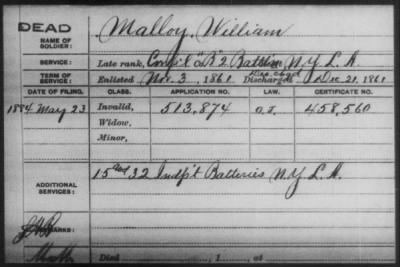 DEAD
NAME OF SOLDIER: Malloy, William
SERVICE: Late rank, "B" 2 Battalion N.Y. L. A.
TERM OF SERVICE: Enlisted Nov. 3, 1861 Discharged Dec. 21, 1861
DATE OF FILING. CLASS. APPLICATION NO. LAW. CERTIFICATE NO.
1884 May 23 Invalid, 513,874 O.L. 458,560
Widow,
Minor,
ADDITIONAL SERVICES: 15 and 32 Indp't Batteries N.Y. L. A.
REMARKS:
Died , 1 , at